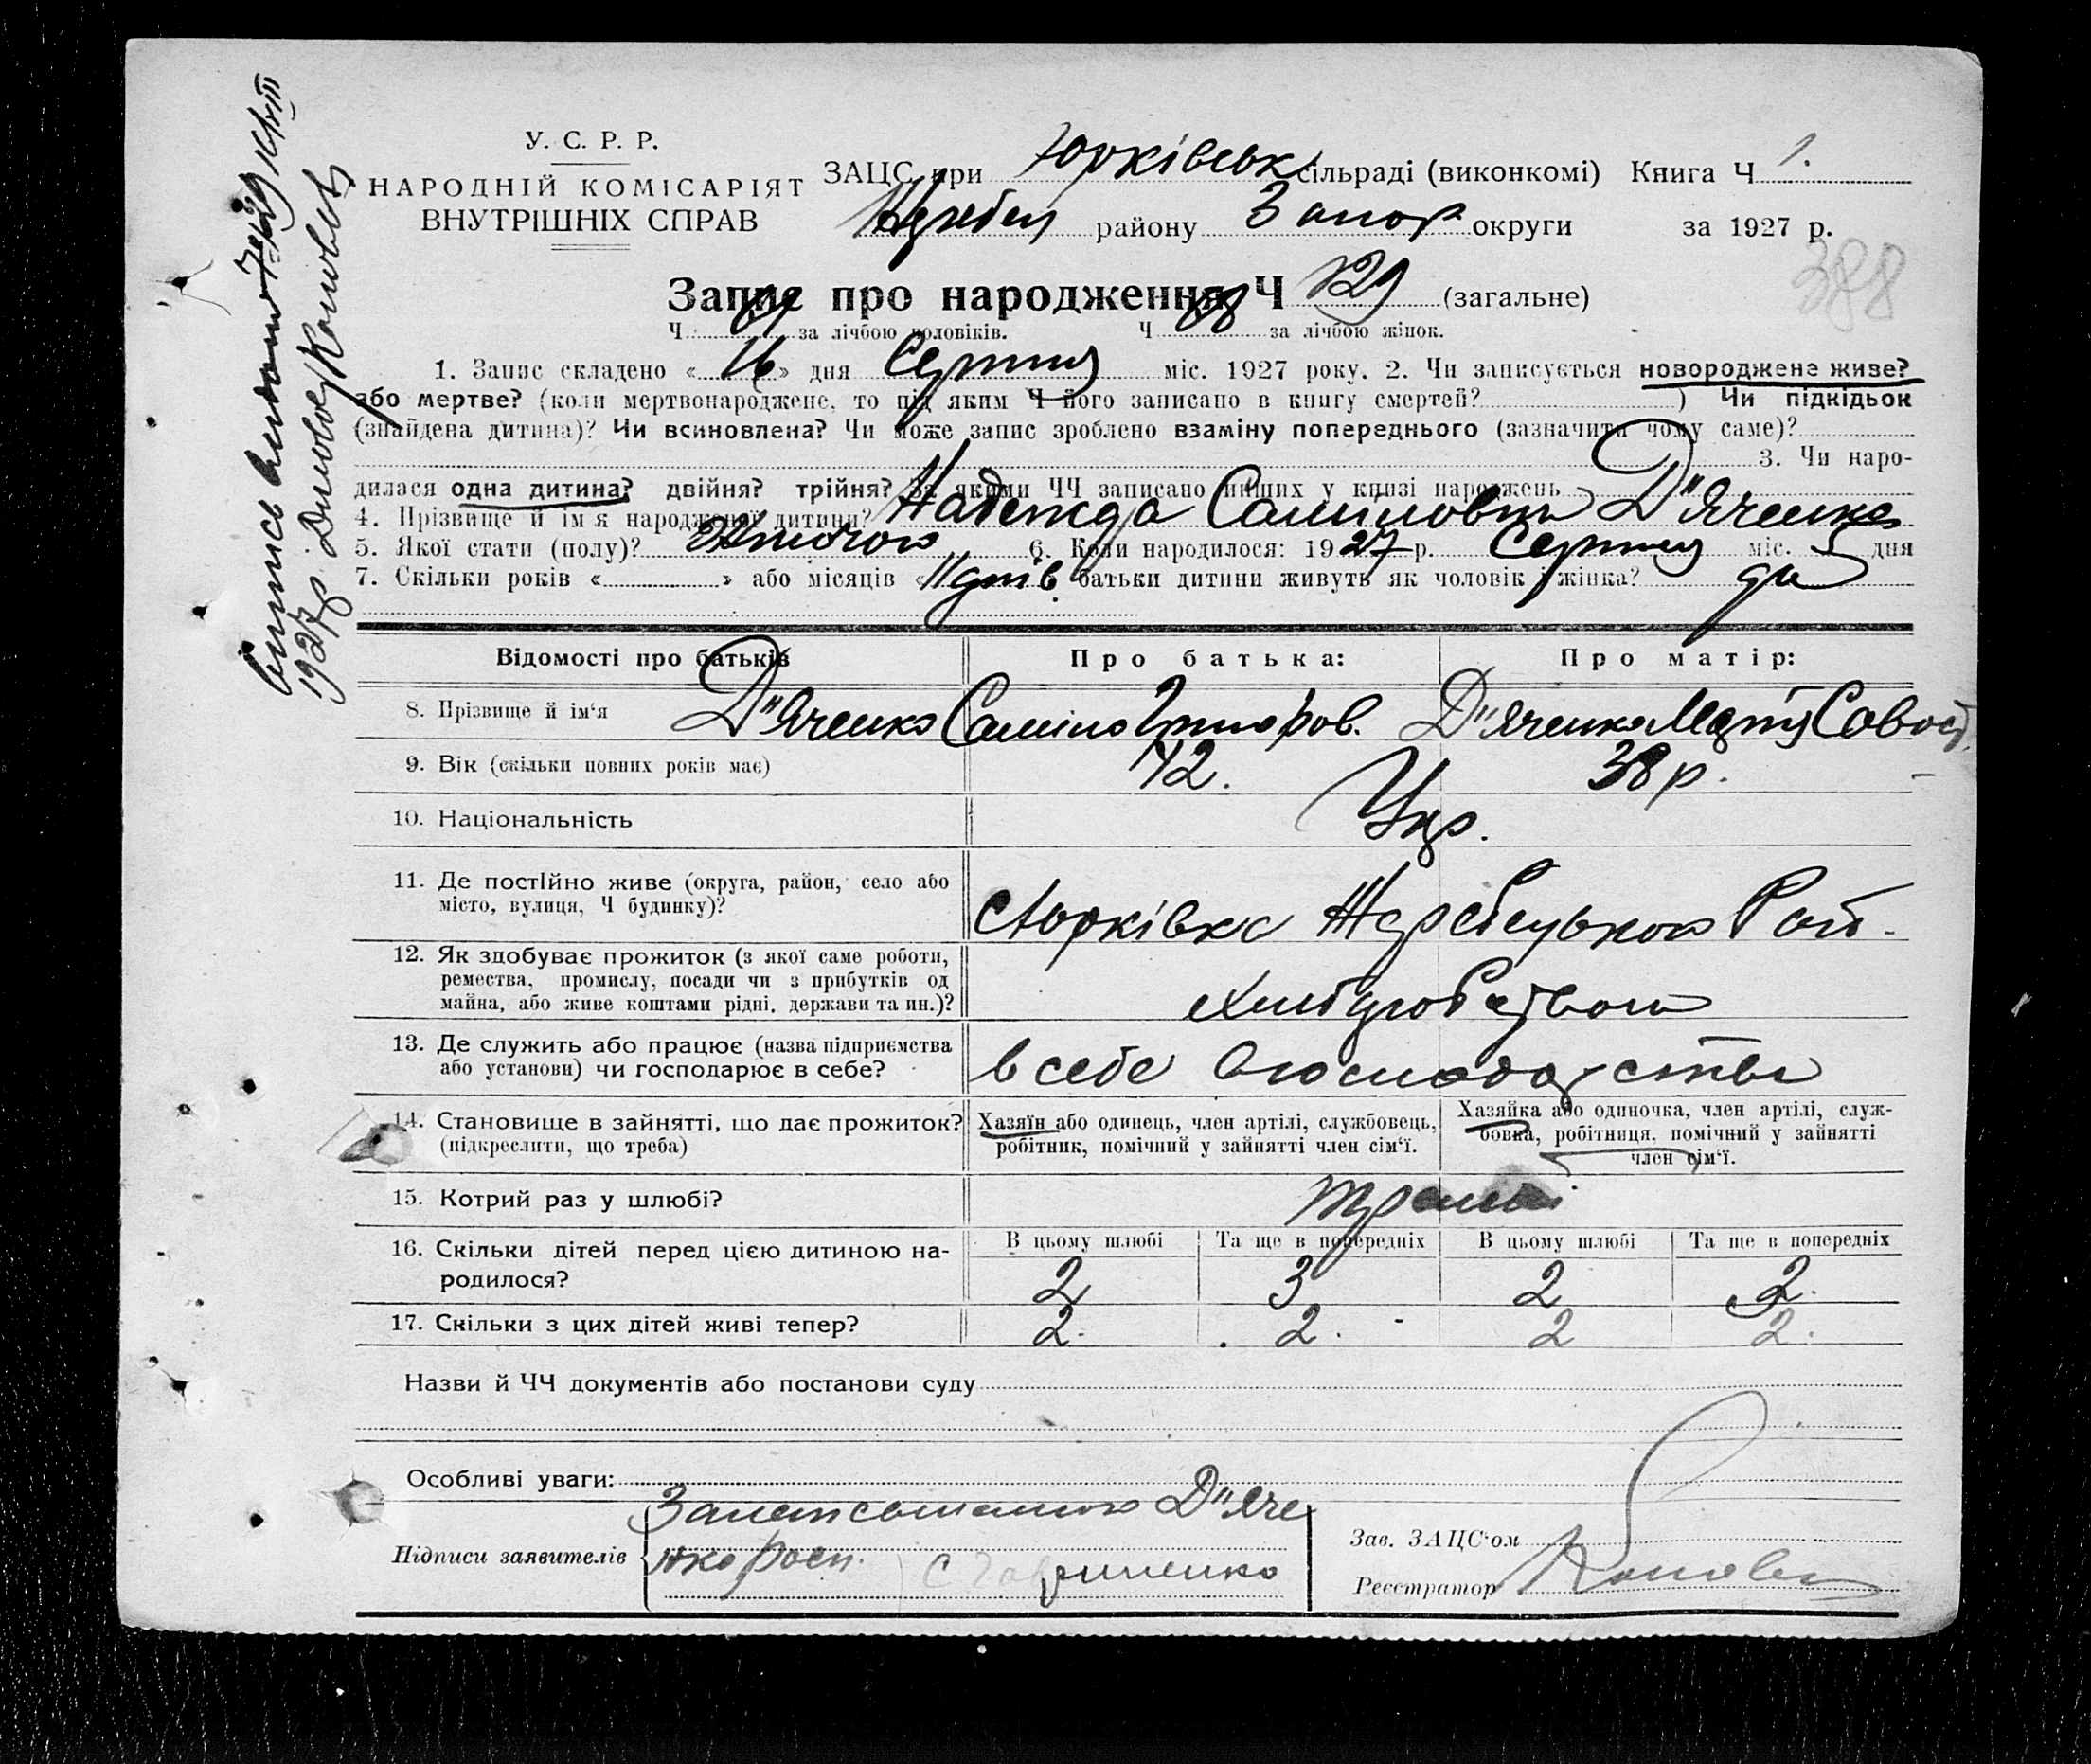 У. С. Р. Р.
НАРОДНІЙ КОМІСАРІЯТ
ВНУТРІШНІХ СПРАВ
ЗАЦС при Юрківськ сільраді (виконкомі) Книга Ч 1.
району Запор округи за 1927 р.
388
Запис про народження Ч 129 (загальне)
Ч за лічбою чоловіків. Ч 68 за лічбою жінок.
1. Запис складено «16» дня Серпня міс. 1927 року. 2. Чи записується новороджене живе?
або мертве? (коли мертвонароджене, то під яким Ч його записано в книгу смертей? ) Чи підкідьок
(знайдена дитина)? Чи всиновлена? Чи може запис зроблено взаміну попереднього (зазначити чому саме)?
3. Чи наро-
дилася одна дитина? двійня? трійня? За якими ЧЧ записано инших у книзі народжень
4. Прізвище й ім'я народженої дитини? Надежда Д"Яченко
5. Якої стати (полу)? 6. Коли народилося: 1927 р. Серпня міс. 5 дня
7. Скільки років « » або місяців «11 днів батьки дитини живуть як чоловік і жінка? да
Відомості про батьків Про батька: Про матір:
8. Прізвище й ім'я Д"Яченко Д"Яченко
9. Вік (скільки повних років має) 42. 38 р.
10. Національність Укр.
11. Де постійно живе (округа, район, село або
місто, вулиця, Ч будинку)?
с Юрківка Жеребецького Рай.
12. Як здобуває прожиток (з якої саме роботи,
ремества, промислу, посади чи з прибутків од
майна, або живе коштами рідні, держави та ин.)?
13. Де служить або працює (назва підприємства
або установи) чи господарює в себе?
в себе в господарстві
14. Становище в зайнятті, що дає прожиток?
(підкреслити, що треба)
Хазяїн або одинець, член артілі, службовець,
робітник, помічний у зайнятті член сім'ї.
Хазяйка або одиночка, член артілі, служ-
бовка, робітниця, помічний у зайнятті
член сім'ї.
15. Котрий раз у шлюбі?
16. Скільки дітей перед цією дитиною на-
родилося?
В цьому шлюбі Та ще в попередніх В цьому шлюбі Та ще в попередніх
2 3 2 2.
17. Скільки з цих дітей живі тепер? 2. 2. 2 2.
Назви й ЧЧ документів або постанови суду
Особливі уваги:
Підписи заявителів
Д"Яче
нко
Зав. ЗАЦС'ом
Реєстратор
1927 р.